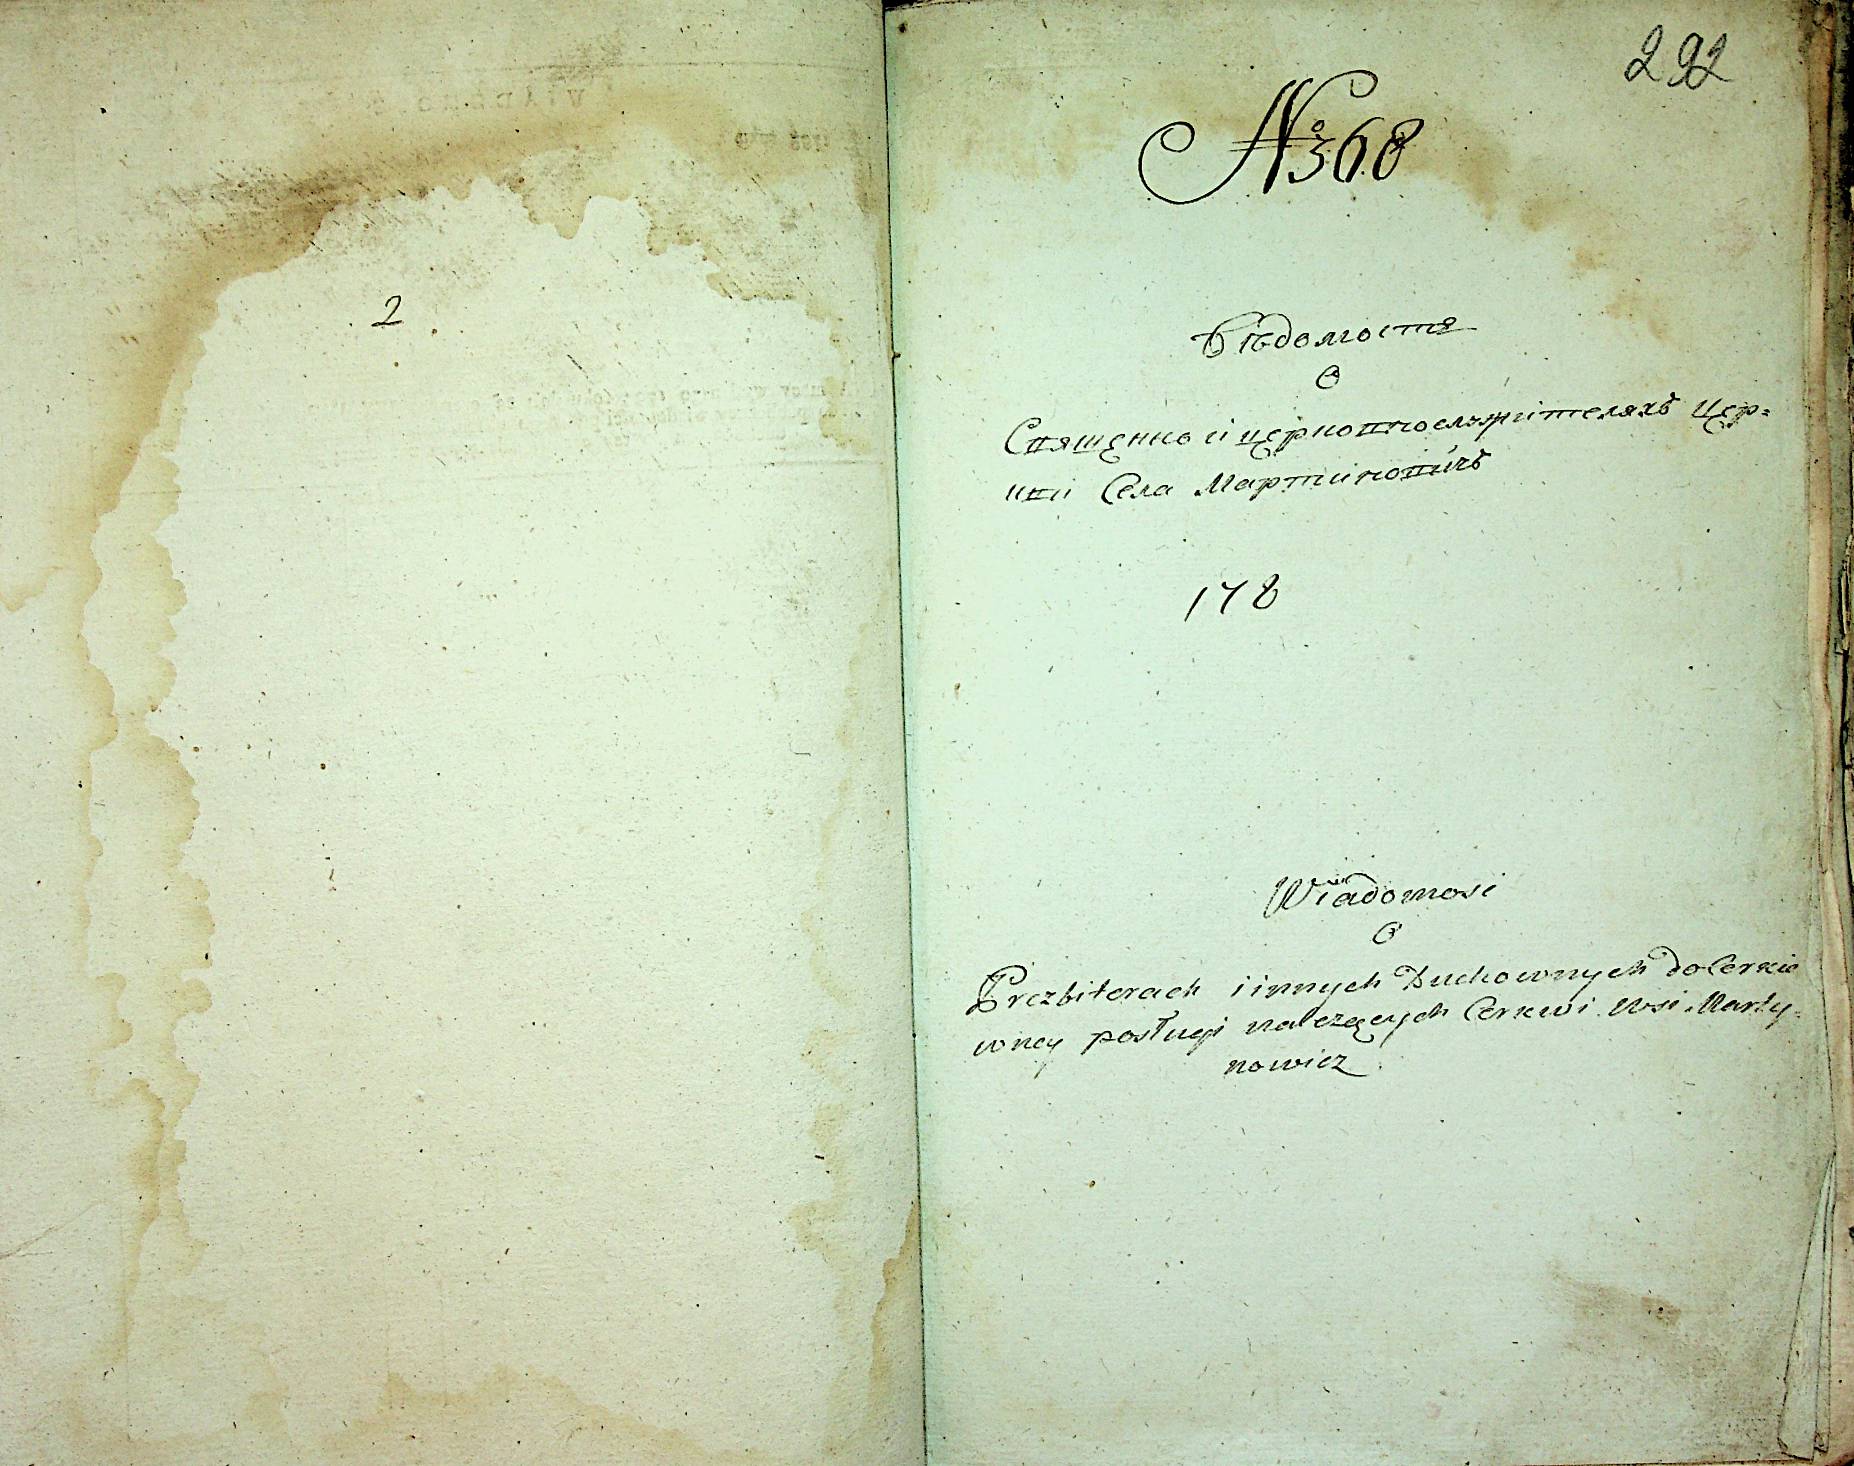 2
292
№ 368
Вѣдомость
О
Священно и церковнослужителяхъ Цер-
кви Села Мартиновичъ
178
Wiadomosc
O
Prezbiterach i innych Duchownych do Cerkie
wney posługi należących Cerkwi Wsi Marty-
nowicz